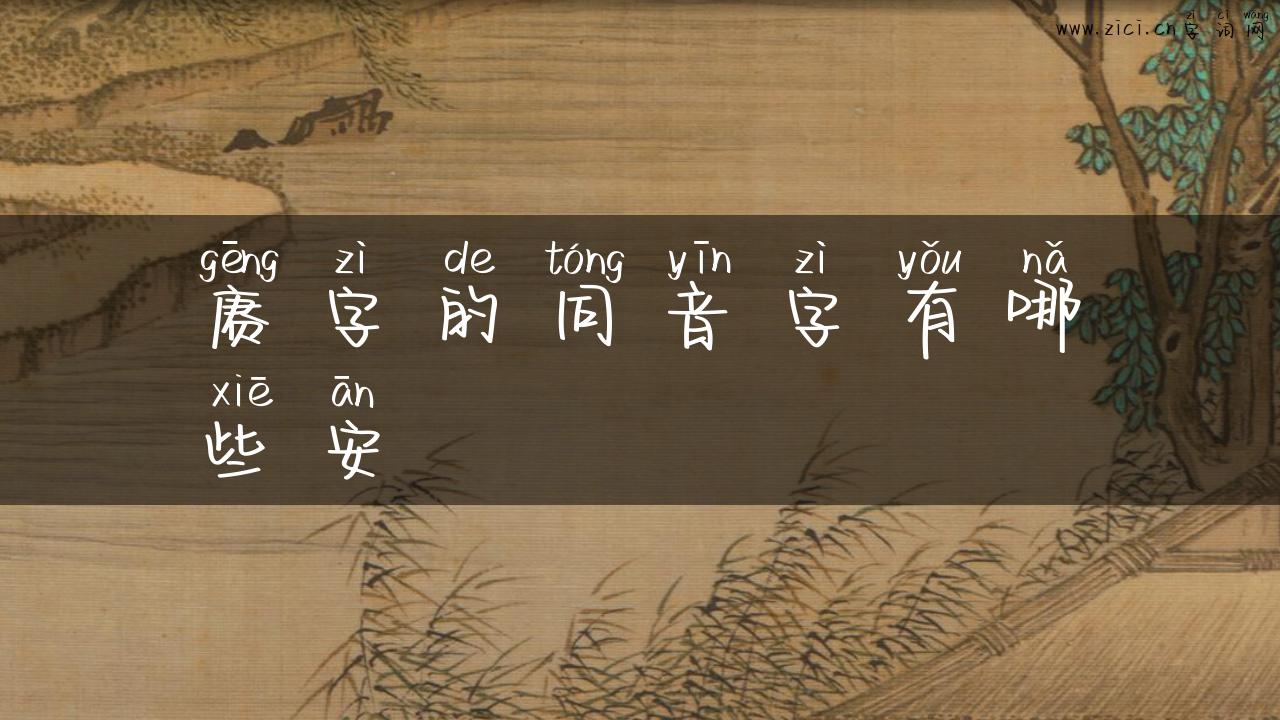 zì cí wǎng
www.zici.cn字词网
gēng zì de tóng yīn zì yǒu nǎ
赓字的同音字有哪
xiē ān
些安